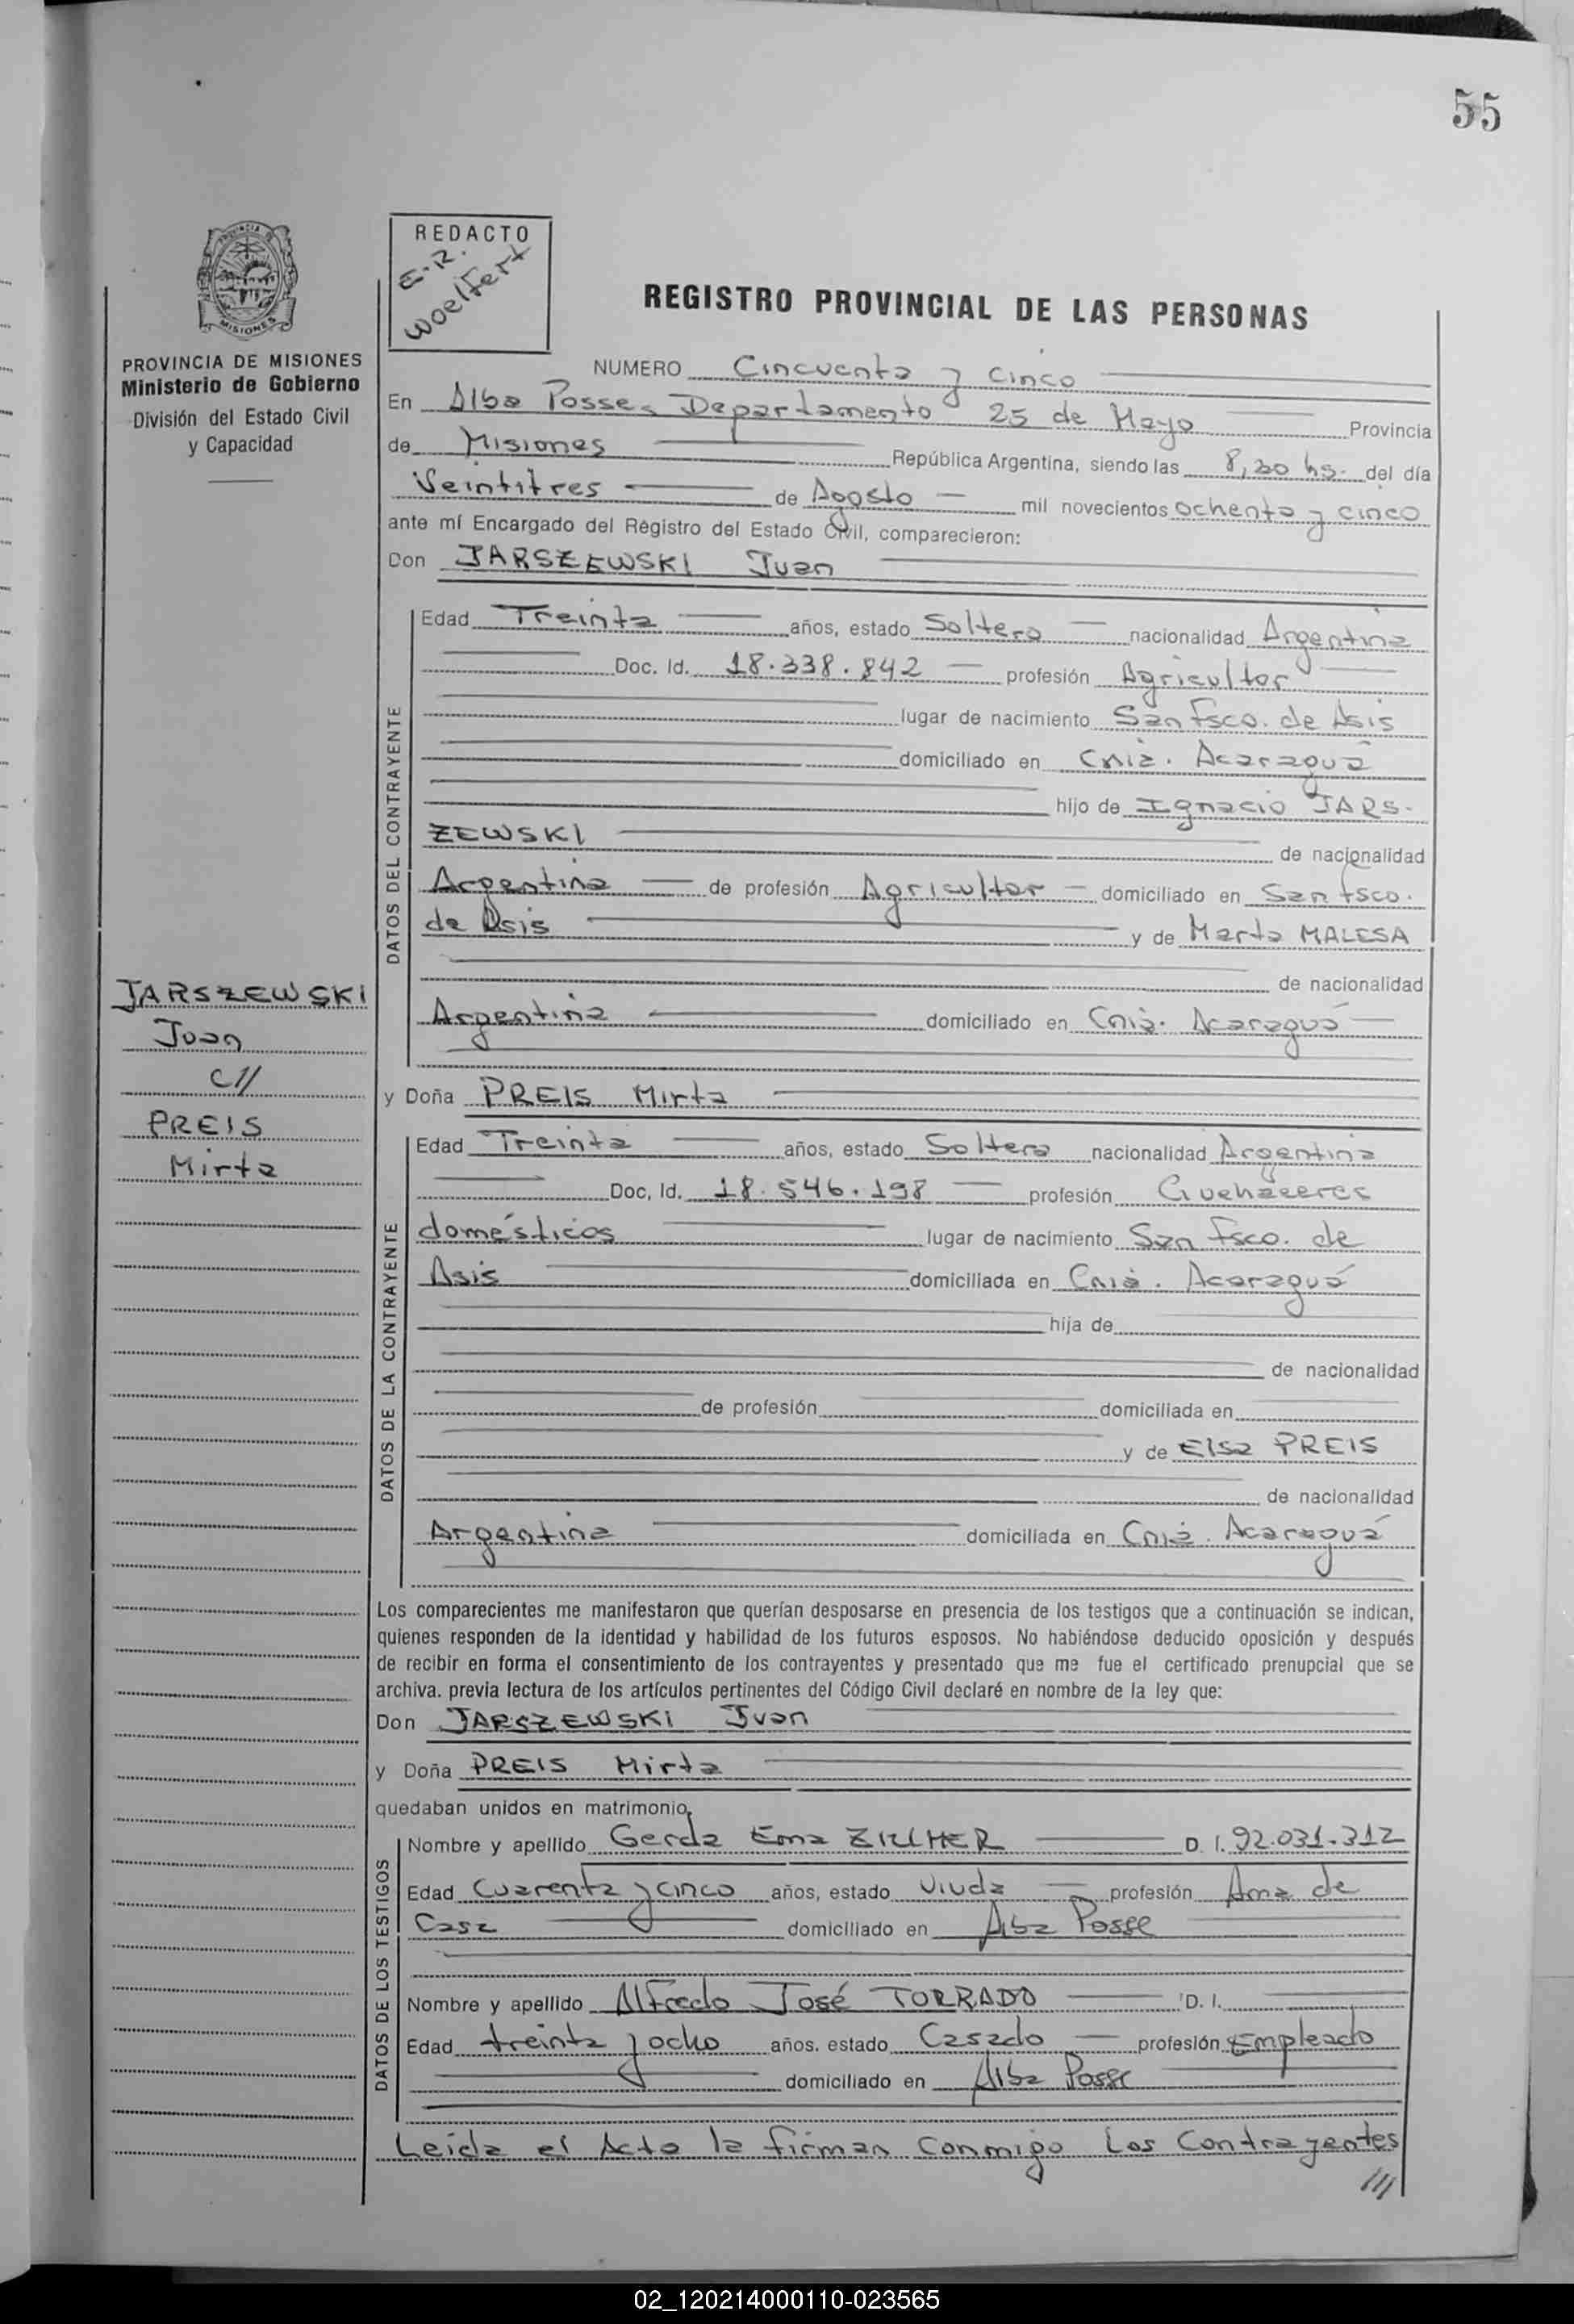 55
REDACTO
E.R.
Woelfert
PROVINCIA DE MISIONES
Ministerio de Gobierno
División del Estado Civil
y Capacidad
REGISTRO PROVINCIAL DE LAS PERSONAS
NUMERO Cincuenta y cinco
En Alba Posse, Departamento 25 de Mayo Provincia
de Misiones República Argentina, siendo las 8,30 hs. del día
Veintitres de Agosto mil novecientos ochenta y cinco
ante mí Encargado del Registro del Estado Civil, comparecieron:
Don JARSZEWSKI Juan
DATOS DEL CONTRAYENTE
Edad Treinta años, estado Soltero nacionalidad Argentina
Doc. Id. 18.338.842 profesión Agricultor
lugar de nacimiento San Fsco. de Asis
domiciliado en Cnia. Acaraguá
hijo de Ignacio JARS-
ZEWSKI de nacionalidad
Argentina de profesión Agricultor domiciliado en San Fsco.
de Asis y de Marta MALESA
de nacionalidad
Argentina domiciliado en Cnia. Acaraguá
JARSZEWSKI
Juan
C//
PREIS
Mirta
y Doña PREIS Mirta
DATOS DE LA CONTRAYENTE
Edad Treinta años, estado Soltera nacionalidad Argentina
Doc, Id. 18.546.198 profesión Quehaceres
domésticos lugar de nacimiento San Fsco. de
Asis domiciliada en Cnia. Acaraguá
hija de
de nacionalidad
de profesión domiciliada en
y de Elsa PREIS
de nacionalidad
Argentina domiciliada en Cnia. Acaraguá
Los comparecientes me manifestaron que querían desposarse en presencia de los testigos que a continuación se indican,
quienes responden de la identidad y habilidad de los futuros esposos. No habiéndose deducido oposición y después
de recibir en forma el consentimiento de los contrayentes y presentado que me fue el certificado prenupcial que se
archiva. previa lectura de los artículos pertinentes del Código Civil declaré en nombre de la ley que:
Don JARSZEWSKI Juan
y Doña PREIS Mirta
quedaban unidos en matrimonio,
DATOS DE LOS TESTIGOS
Nombre y apellido Gerda Ema D. I. 92.031.312
Edad Cuarenta y cinco años, estado Viuda profesión Ama de
Casa domiciliado en Alba Posse
Nombre y apellido Alfredo José TORRADO D. I.
Edad treinta y ocho años. estado Casado profesión Empleado
domiciliado en Alba Posse
Leida el Acta la firman conmigo Los Contrayentes
///
02_120214000110-023565